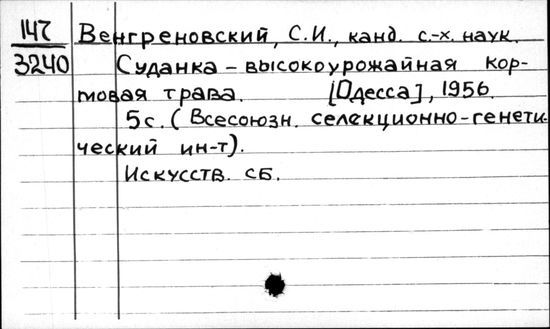 147
3240
Венгреновский, С.И., канд. с.-х. наук.
Суданка – высокоурожайная кор-
мовая трава. [Одесса], 1956.
5 с. (Всесоюзн. селекционно-генети-
ческий ин-т).
Искусств. сб.